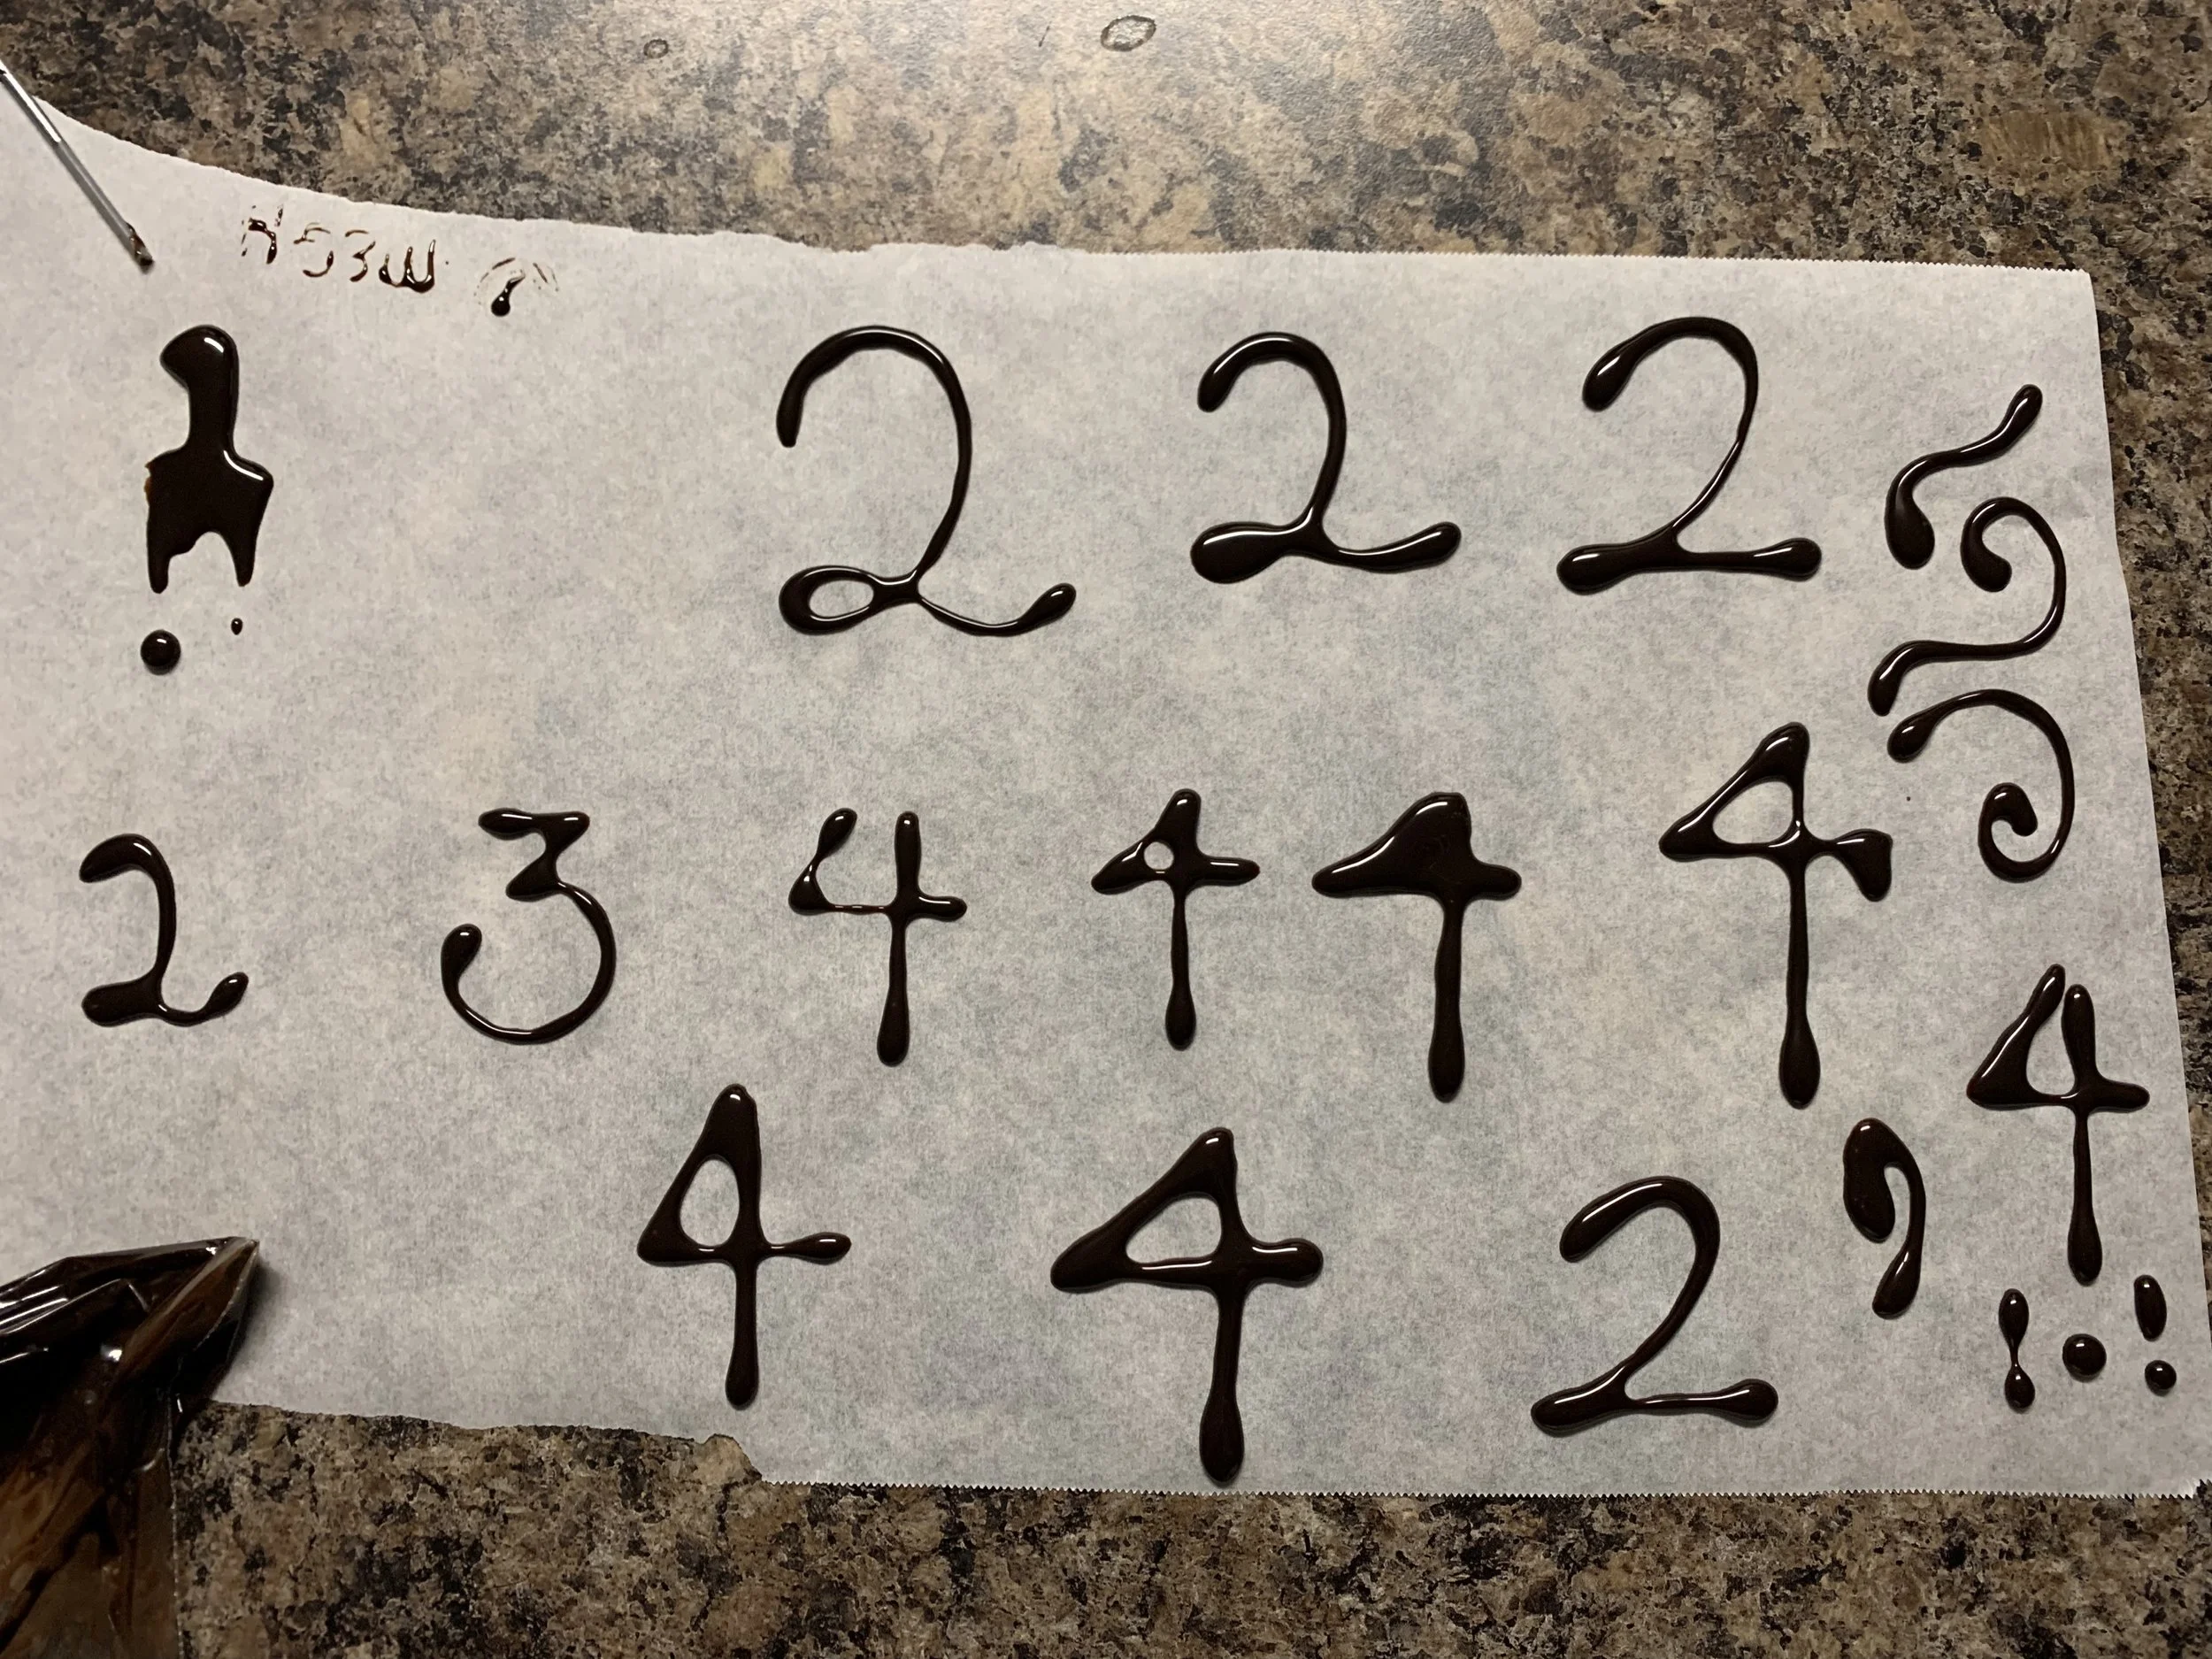 2 2 2
2 3 4 4 4 4
4
4 4 2